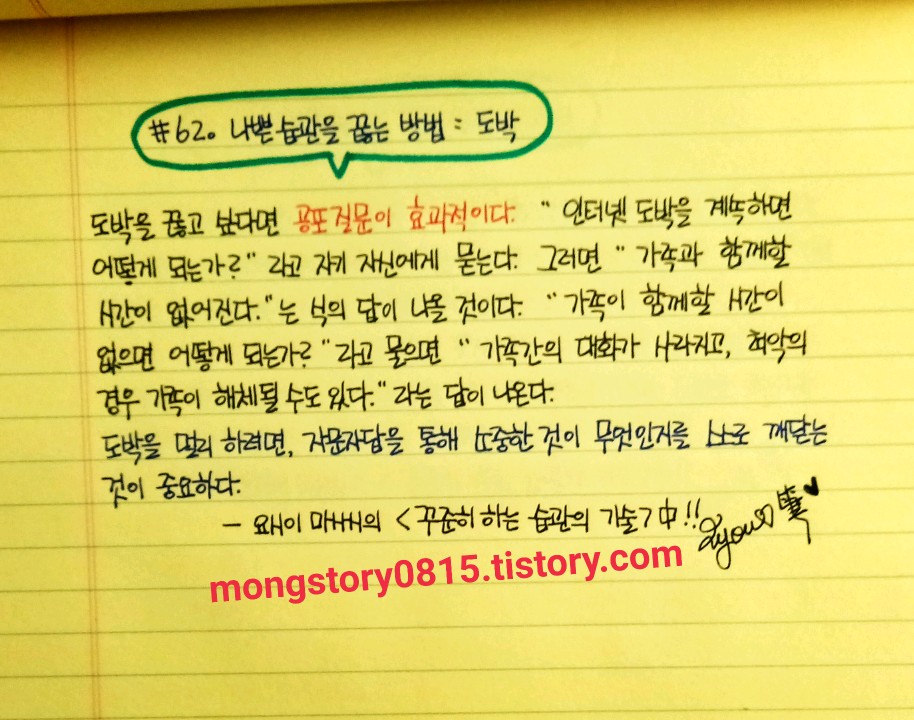 #62. 나쁜 습관을 끊는 방법 : 도박
도박을 끊고 싶다면 공포질문이 효과적이다. " 인터넷 도박을 계속하면
어떻게 되는가?" 라고 자기 자신에게 묻는다. 그러면 " 가족과 함께할
시간이 없어진다."는 식의 답이 나올 것이다. "가족이 함께할 시간이
없으면 어떻게 되는가?"라고 물으면 " 가족간의 대화가 사라지고, 최악의
경우 가족이 해체될 수도 있다."라는 답이 나온다.
도박을 멀리 하려면, 자문자답을 통해 소중한 것이 무엇인지를 스스로 깨닫는
것이 중요하다.
- 요시이 마사시의 <꾸준히 하는 습관의 기술> 中!!
mongstory0815.tistory.com